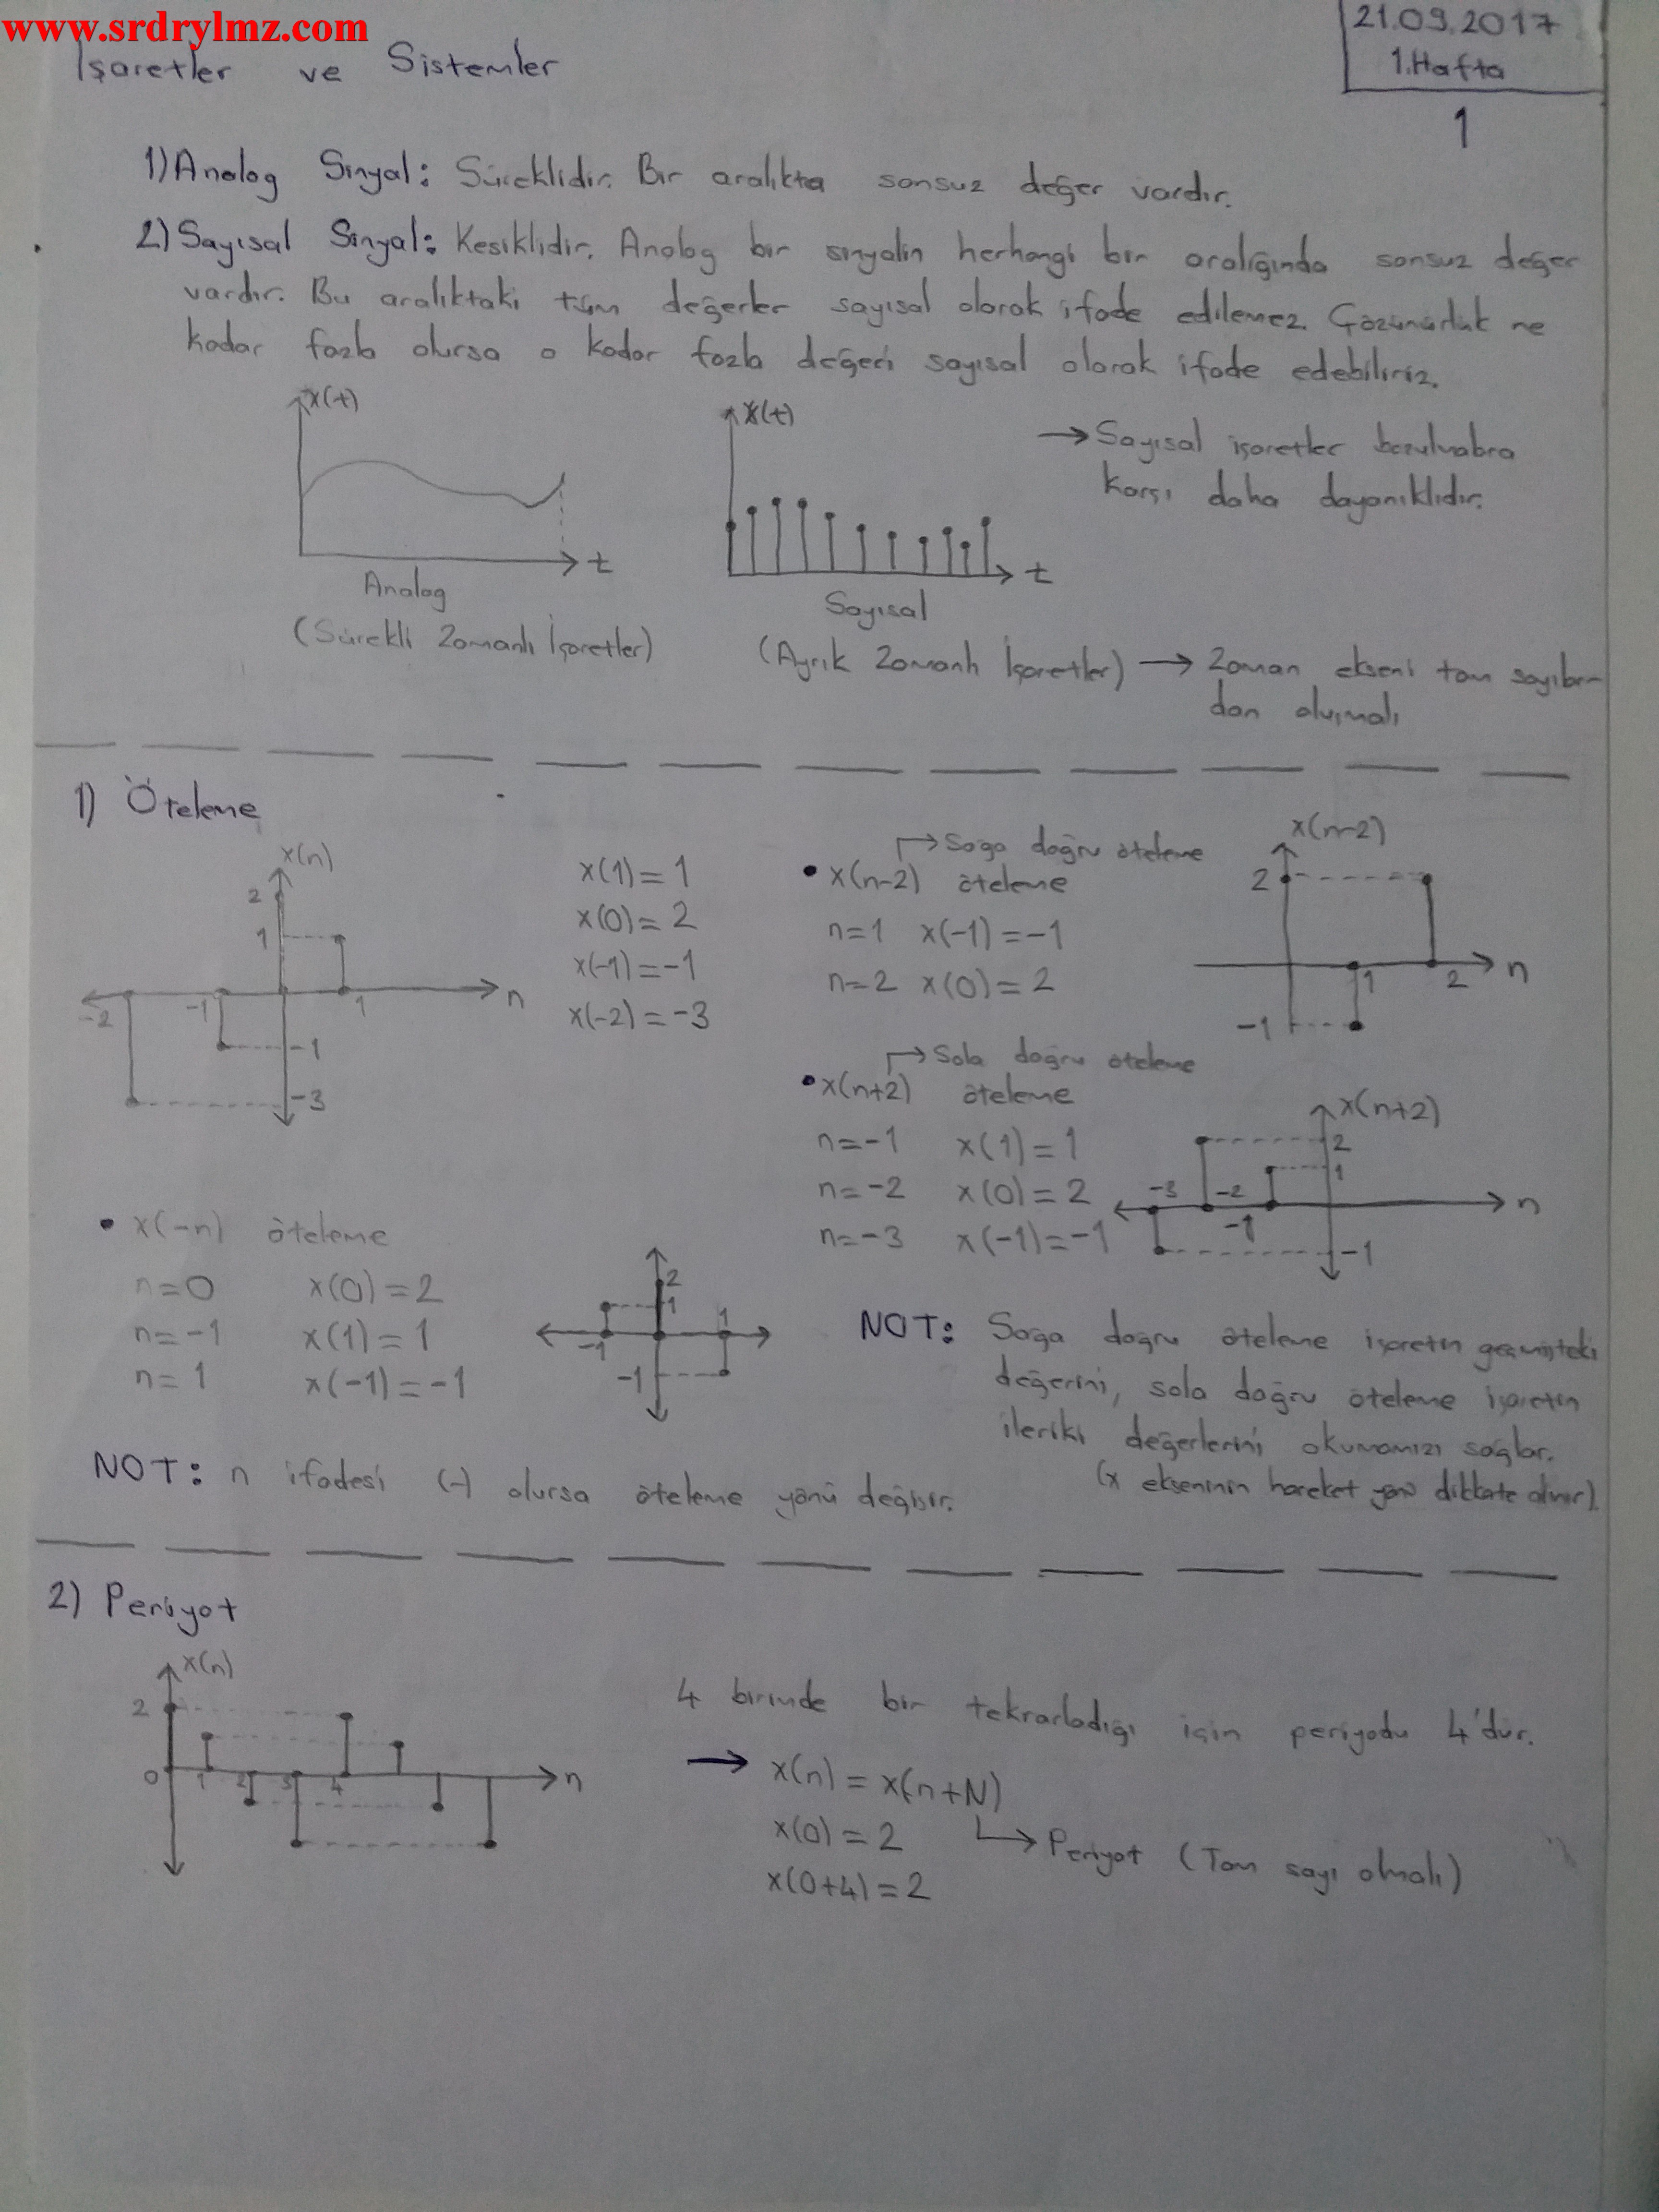 www.srdrylmz.com
21.09.2017
1.Hafta
1
İşaretler ve Sistemler
1) Analog Sinyal: Süreklidir. Bir aralıkta sonsuz değer vardır.
2) Sayısal Sinyal: Kesiklidir. Analog bir sinyalin herhangi bir aralığında sonsuz değer
vardır. Bu aralıktaki tüm değerler sayısal olarak ifade edilemez. Çözünürlük ne
kadar fazla olursa o kadar fazla değeri sayısal olarak ifade edebiliriz.
x(t)
t
Analog
(Sürekli Zamanlı İşaretler)
x(t)
t
Sayısal
(Ayrık Zamanlı İşaretler) → Zaman ekseni tam sayılar-
dan oluşmalı
→ Sayısal işaretler bozulmalara
karşı daha dayanıklıdır.
1) Öteleme
x(n)
2
1
-2 -1 1 n
-1
-3
x(1) = 1
x(0) = 2
x(-1) = -1
x(-2) = -3
→ Sağa doğru öteleme
• x(n-2) öteleme
n=1 x(-1) = -1
n=2 x(0) = 2
x(n-2)
2
1 2 n
-1
→ Sola doğru öteleme
• x(n+2) öteleme
n=-1 x(1) = 1
n=-2 x(0) = 2
n=-3 x(-1) = -1
x(n+2)
2
1
-3 -2 -1 n
-1
• x(-n) öteleme
n=0 x(0) = 2
n=-1 x(1) = 1
n=1 x(-1) = -1
2
1
-1 1
-1
NOT: Sağa doğru öteleme işaretin geçmişteki
değerini, sola doğru öteleme işaretin
ileriki değerlerini okumamızı sağlar.
(x ekseninin hareket yönü dikkate alınır).
NOT: n ifadesi (-) olursa öteleme yönü değişir.
2) Periyot
x(n)
2
0 1 2 3 4 n
4 birimde bir tekrarladığı için periyodu 4'dür.
→ x(n) = x(n+N)
x(0) = 2
→ Periyot (Tam sayı olmalı)
x(0+4) = 2